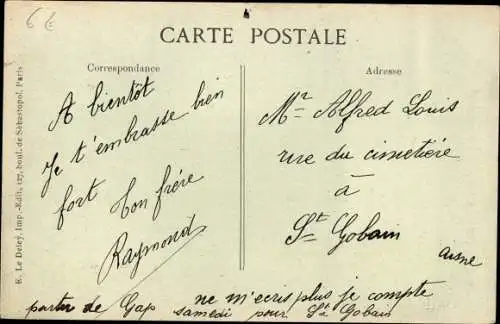 6 €
CARTE POSTALE
Correspondance
Adresse
A bientôt
Je t'embrasse bien
fort Ton frère
Raymond
Mr Alfred Louis
rue du cimetière
à
St Gobain
Aisne
ne m'ecris plus je compte
partir de Gap samedi pour St Gobain
E. Le Deley, Imp.-Edit., 127, boul. de Sébastopol, Paris